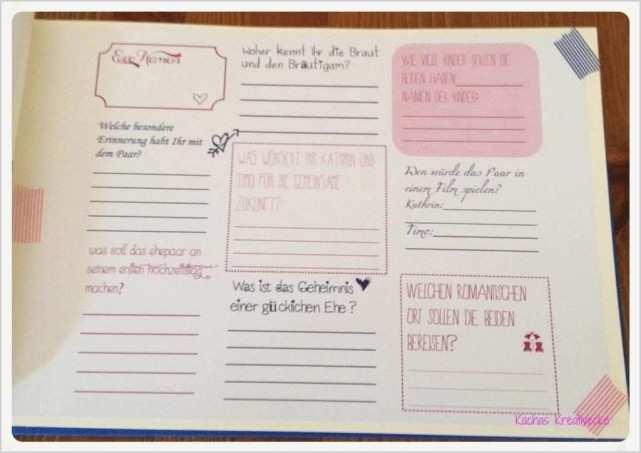 Eure Namen
Welche besondere
Erinnerung habt Ihr mit
dem Paar?
was soll das ehepaar an
seinem ersten hochzeitstag
machen?
Woher kennt Ihr die Braut
und den Bräutigam?
WAS WÜNSCHT IHR KATHRIN UND
TIMO FÜR DIE GEMEINSAME
ZUKUNFT?
Was ist das Geheimnis
einer glücklichen Ehe?
WIE VIELE KINDER SOLLEN DIE
BEIDEN HABEN:
NAMEN DER KINDER:
Wen würde das Paar in
einem Film spielen?
Kathrin:
Timo:
WELCHEN ROMANTISCHEN
ORT SOLLEN DIE BEIDEN
BEREISEN?
Kachas Kreativecke